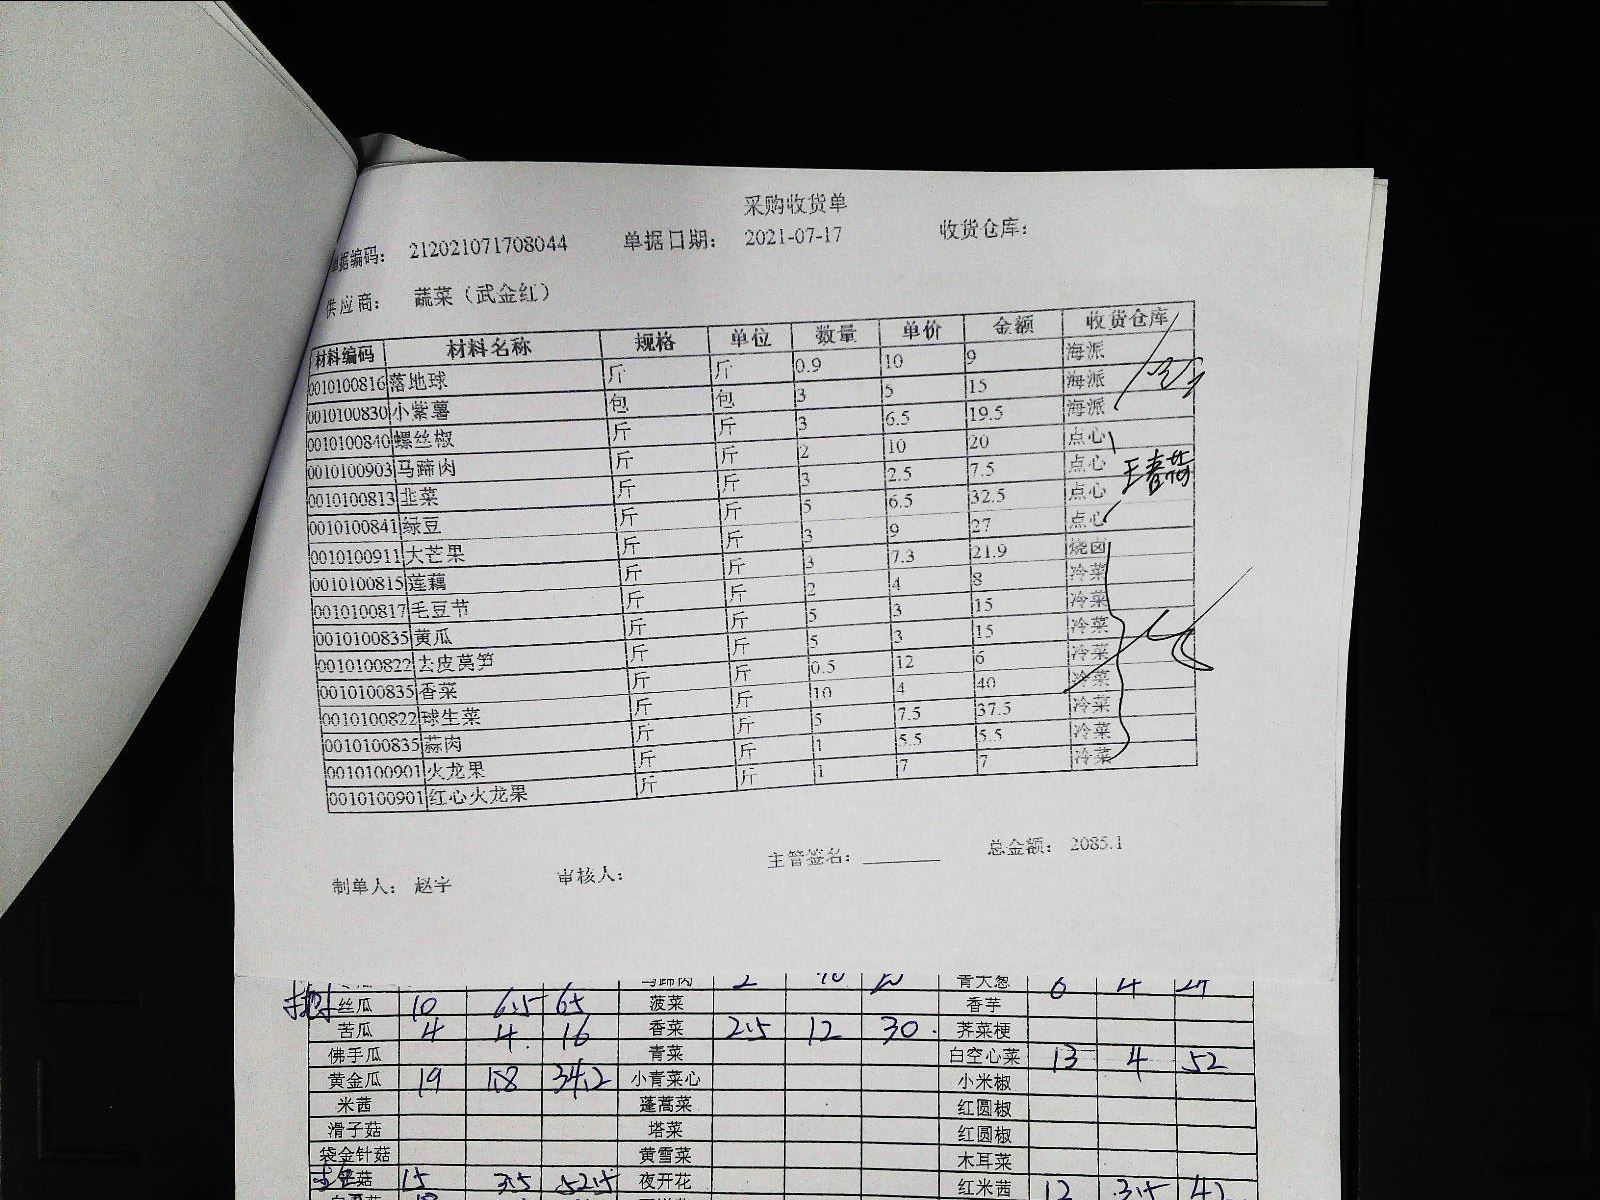 采购收货单
单据编码: 212021071708044 单据日期: 2021-07-17 收货仓库:
供应商: 蔬菜（武金红）
材料编码 材料名称 规格 单位 数量 单价 金额 收货仓库
0010100816 落地球 斤 斤 0.9 10 9 海派
0010100830 小紫薯 包 包 3 5 15 海派
0010100840 螺丝椒 斤 斤 3 6.5 19.5 海派
0010100903 马蹄肉 斤 斤 2 10 20 点心
0010100813 韭菜 斤 斤 3 2.5 7.5 点心
0010100841 绿豆 斤 斤 5 6.5 32.5 点心
0010100911 大芒果 斤 斤 3 9 27 点心
0010100815 莲藕 斤 斤 3 7.3 21.9 烧卤
0010100817 毛豆节 斤 斤 2 4 8 冷菜
0010100835 黄瓜 斤 斤 5 3 15 冷菜
0010100822 去皮莴笋 斤 斤 5 3 15 冷菜
0010100835 香菜 斤 斤 0.5 12 6 冷菜
0010100822 球生菜 斤 斤 10 4 40 冷菜
0010100835 蒜肉 斤 斤 5 7.5 37.5 冷菜
0010100901 火龙果 斤 斤 1 5.5 5.5 冷菜
0010100901 红心火龙果 斤 斤 1 7 7 冷菜
制单人: 赵宇 审核人: 主管签名: 总金额: 2085.1
马蹄肉 2 10 青大葱 6 4
丝瓜 10 6.5 65 菠菜 香芋
苦瓜 4 4 16 香菜 2.5 12 30 荠菜梗
佛手瓜 青菜 白空心菜 13 4 52
黄金瓜 19 1.8 34.2 小青菜心 小米椒
米茜 蓬蒿菜 红圆椒
滑子菇 塔菜 红圆椒
袋金针菇 黄雪菜 木耳菜
菇 15 3.5 52.5 夜开花 红米茜 12 3.5 42